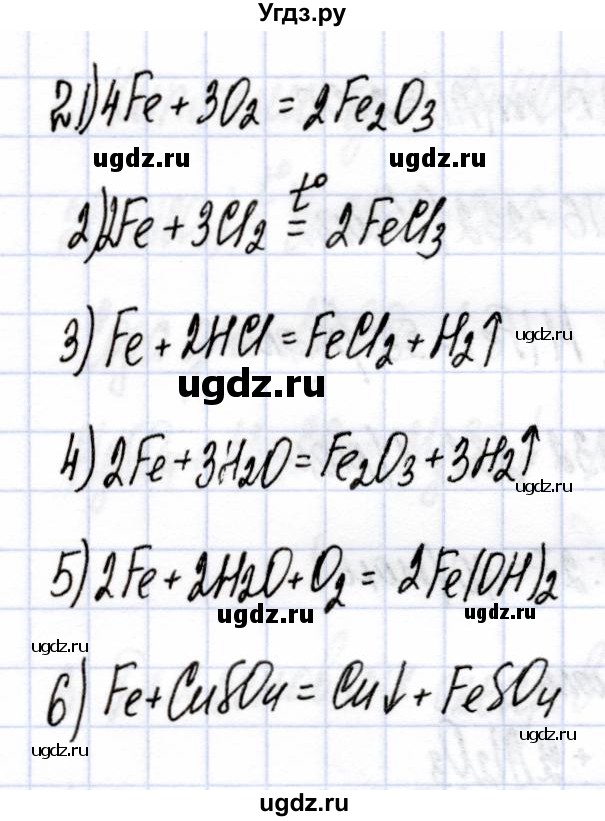 Угдз.ру
№1) 4Fe + 3O₂ = 2Fe₂O₃
ugdz.ru ugdz.ru
t°
2) 2Fe + 3Cl₂ = 2FeCl₃
3) Fe + 2HCl = FeCl₂ + H₂↑ ugdz.ru
ugdz.ru
4) 2Fe + 3H₂O = Fe₂O₃ + 3H₂↑
ugdz.ru
5) 2Fe + 2H₂O + O₂ = 2Fe(OH)₂
ugdz.ru ugdz.ru
ugdz.ru
6) Fe + CuSO₄ = Cu↓ + FeSO₄
ugdz.ru ugdz.ru
ugdz.ru